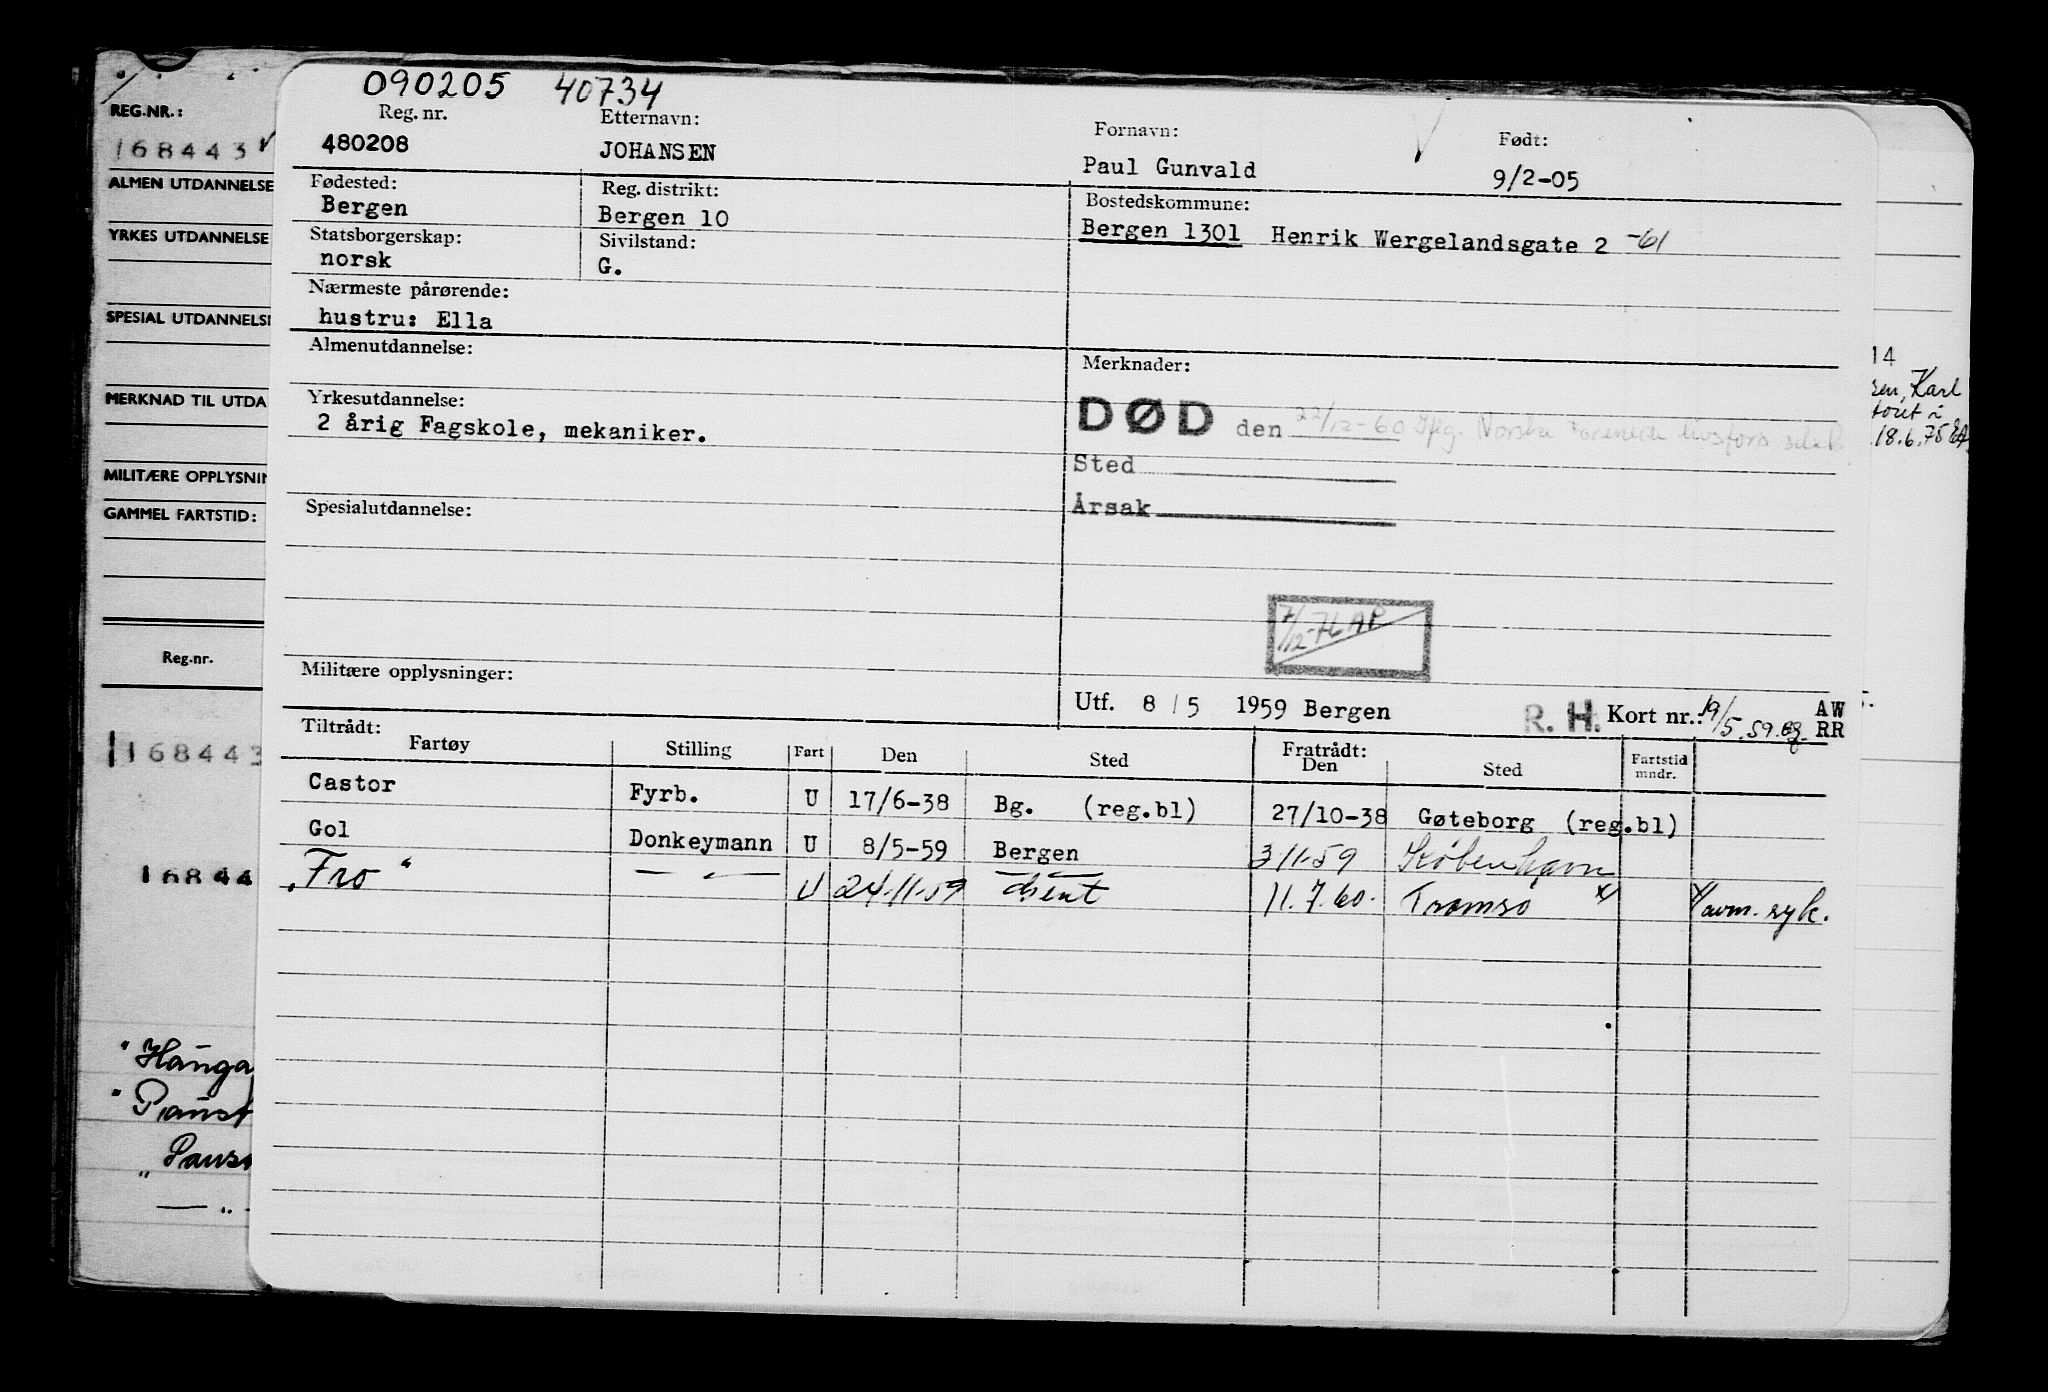 090205 40734
Reg. nr.
480208
Etternavn:
JOHANSEN
Fornavn:
Paul Gunvald
Født:
9/2-05
Fødested:
Bergen
Reg. distrikt:
Bergen 10
Bostedskommune:
Bergen 1301 Henrik Wergelandsgate 2 -61
Statsborgerskap:
norsk
Sivilstand:
G.
Nærmeste pårørende:
hustru: Ella
Almenutdannelse:
Yrkesutdannelse:
2 årig Fagskole, mekaniker.
Spesialutdannelse:
Militære opplysninger:
Merknader:
DØD den 22/12-60 Norske Forenede livsfors.
Sted
Årsak
7/12-76 AP
Utf. 8/5 1959 Bergen R. H. Kort nr.: 19/5.59. AW RR
Tiltrådt: Fratrådt:
Fartøy Stilling Fart Den Sted Den Sted Fartstid mndr.
Castor Fyrb. U 17/6-38 Bg. (reg.bl) 27/10-38 Gøteborg (reg.bl)
Gol Donkeymann U 8/5-59 Bergen 3 11-59 København
"Fro" — " — U 24.11.59 11.7.60. Tromsø x/ x/ avm. syk.
REG.NR.:
168443
ALMEN UTDANNELSE
YRKES UTDANNELSE
SPESIAL UTDANNELS
MERKNAD TIL UTDA
MILITÆRE OPPLYSNIN
GAMMEL FARTSTID:
Reg.nr.
168443
16844
"Hauga
"Paust
"Paus
— " -
14
sen, Karl
18.6.75